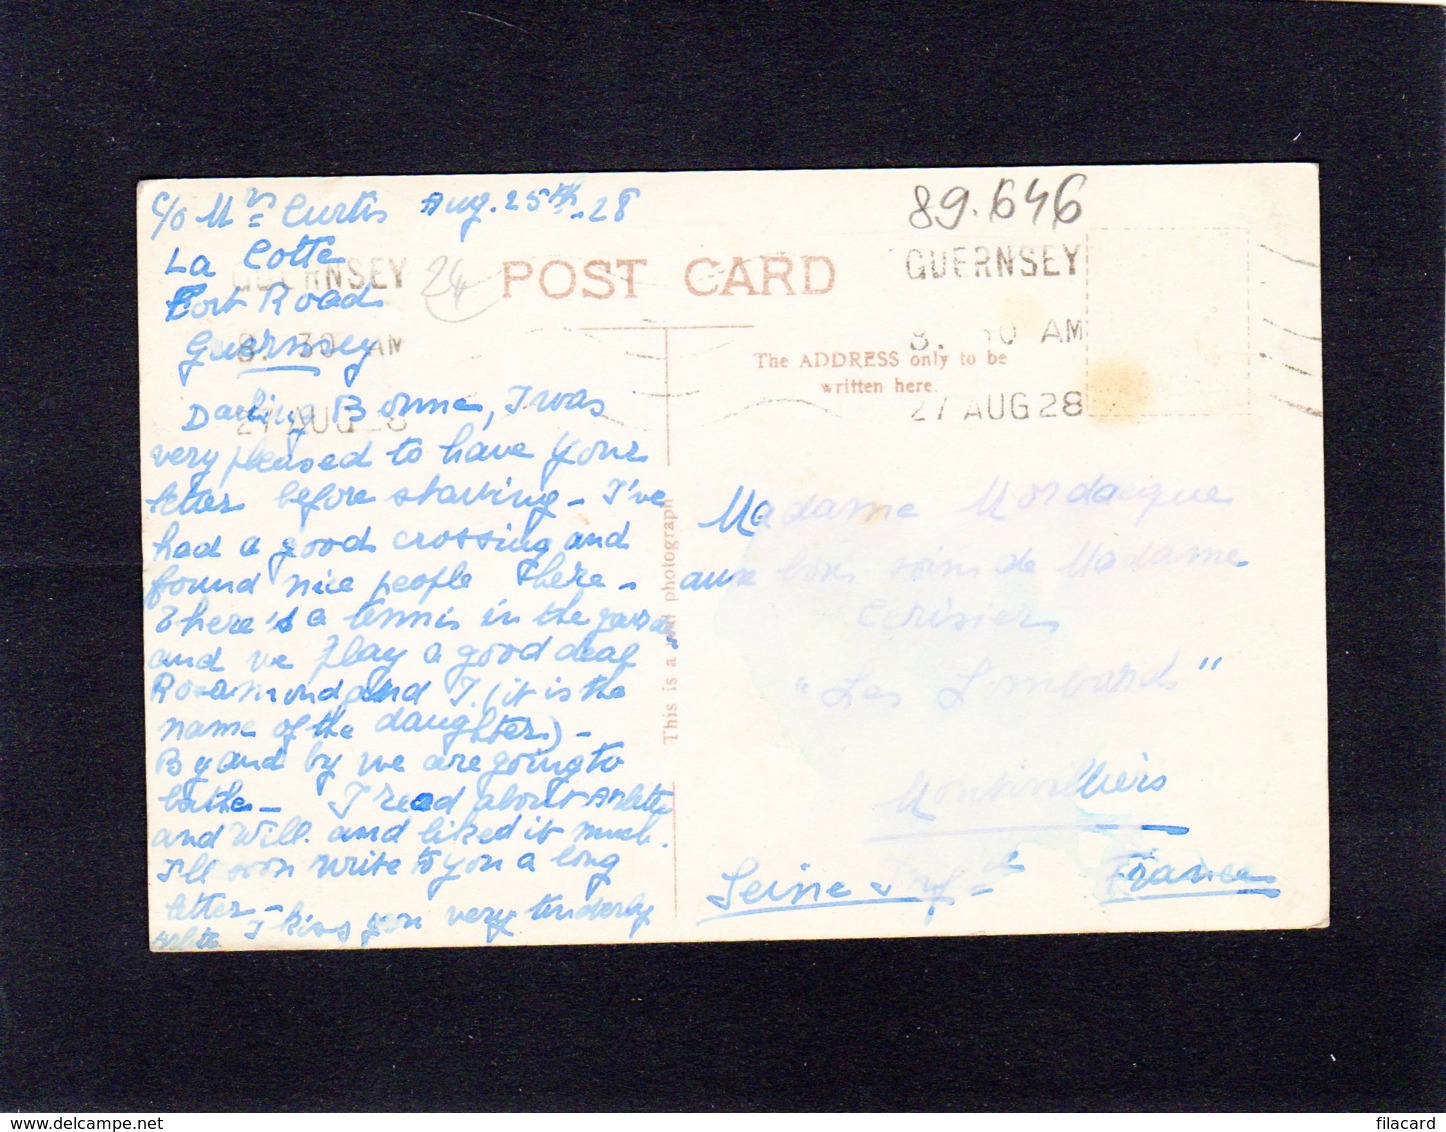 c/o Mrs Curtis Aug. 25th - 28
La Cotte
Fort Road
Guernsey
Darling Bonne, I was
very pleased to have your
letter before starting - I've
had a good crossing and
found nice people there -
There's a tennis in the garden
and we play a good deal
Rosamond and I. (it is the
name of the daughter) -
By and by we are going to
bathe - I read about Arlette
and Will. and liked it much.
I'll soon write to you a long
letter - I kiss you very tenderly
24
POST CARD
89.646
GUERNSEY
8. 30 AM
27 AUG 28
GUERNSEY
8. 30 AM
27 AUG 28
The ADDRESS only to be
written here.
This is a real photograph
Madame Mordacque
aux bons soins de Madame
Cerisier
"Les Lombards"
Montivilliers
Seine Infre France
delcampe.net
filacard